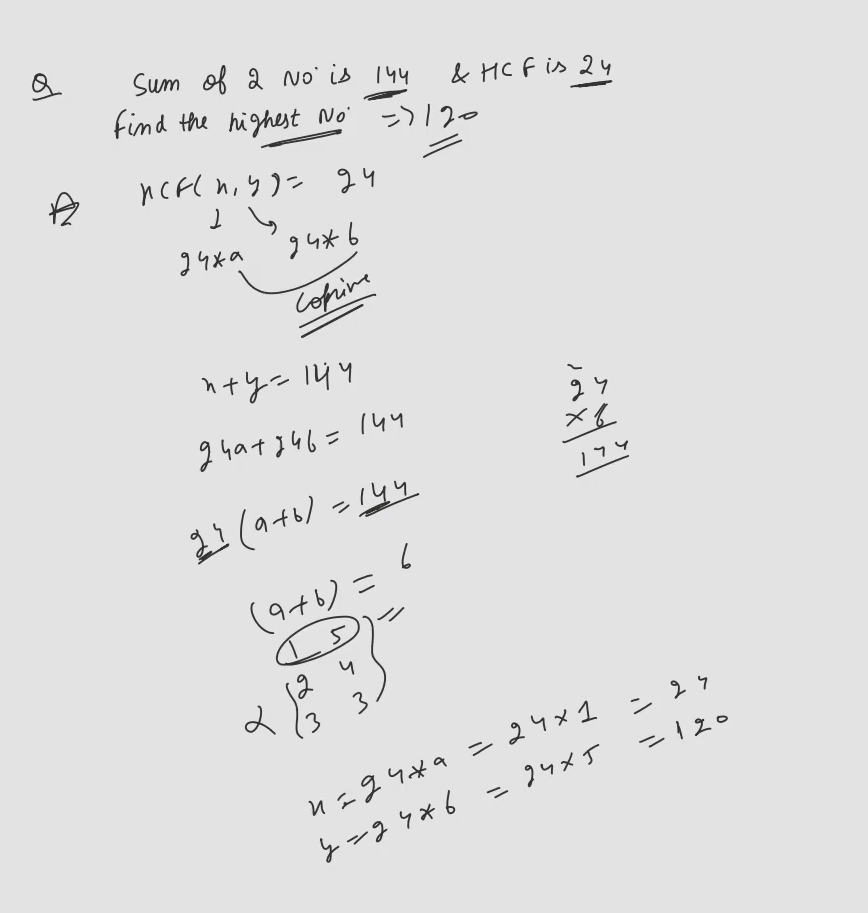 Q Sum of 2 No. is 144 & HCF is 24
find the highest No. => 120
A HCF(x, y) = 24
24*a 24*b
Coprime
x+y = 144
24a+24b = 144
24(a+b) = 144
(a+b) = 6
1 5
2 4
3 3
x = 24*a = 24×1 = 24
y = 24*b = 24×5 = 120
24
×6
144